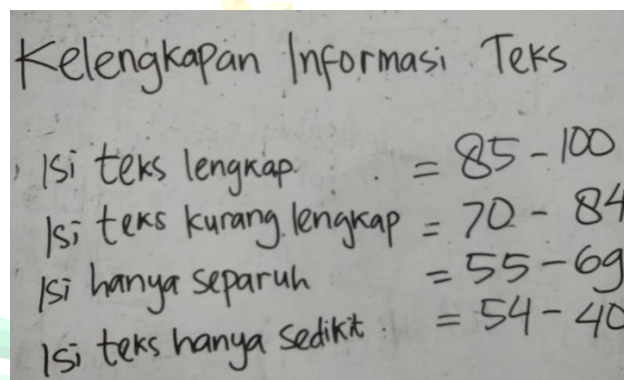 Kelengkapan Informasi Teks
Isi teks lengkap = 85 - 100
Isi teks kurang lengkap = 70 - 84
Isi hanya separuh = 55 - 69
Isi teks hanya sedikit = 54 - 40